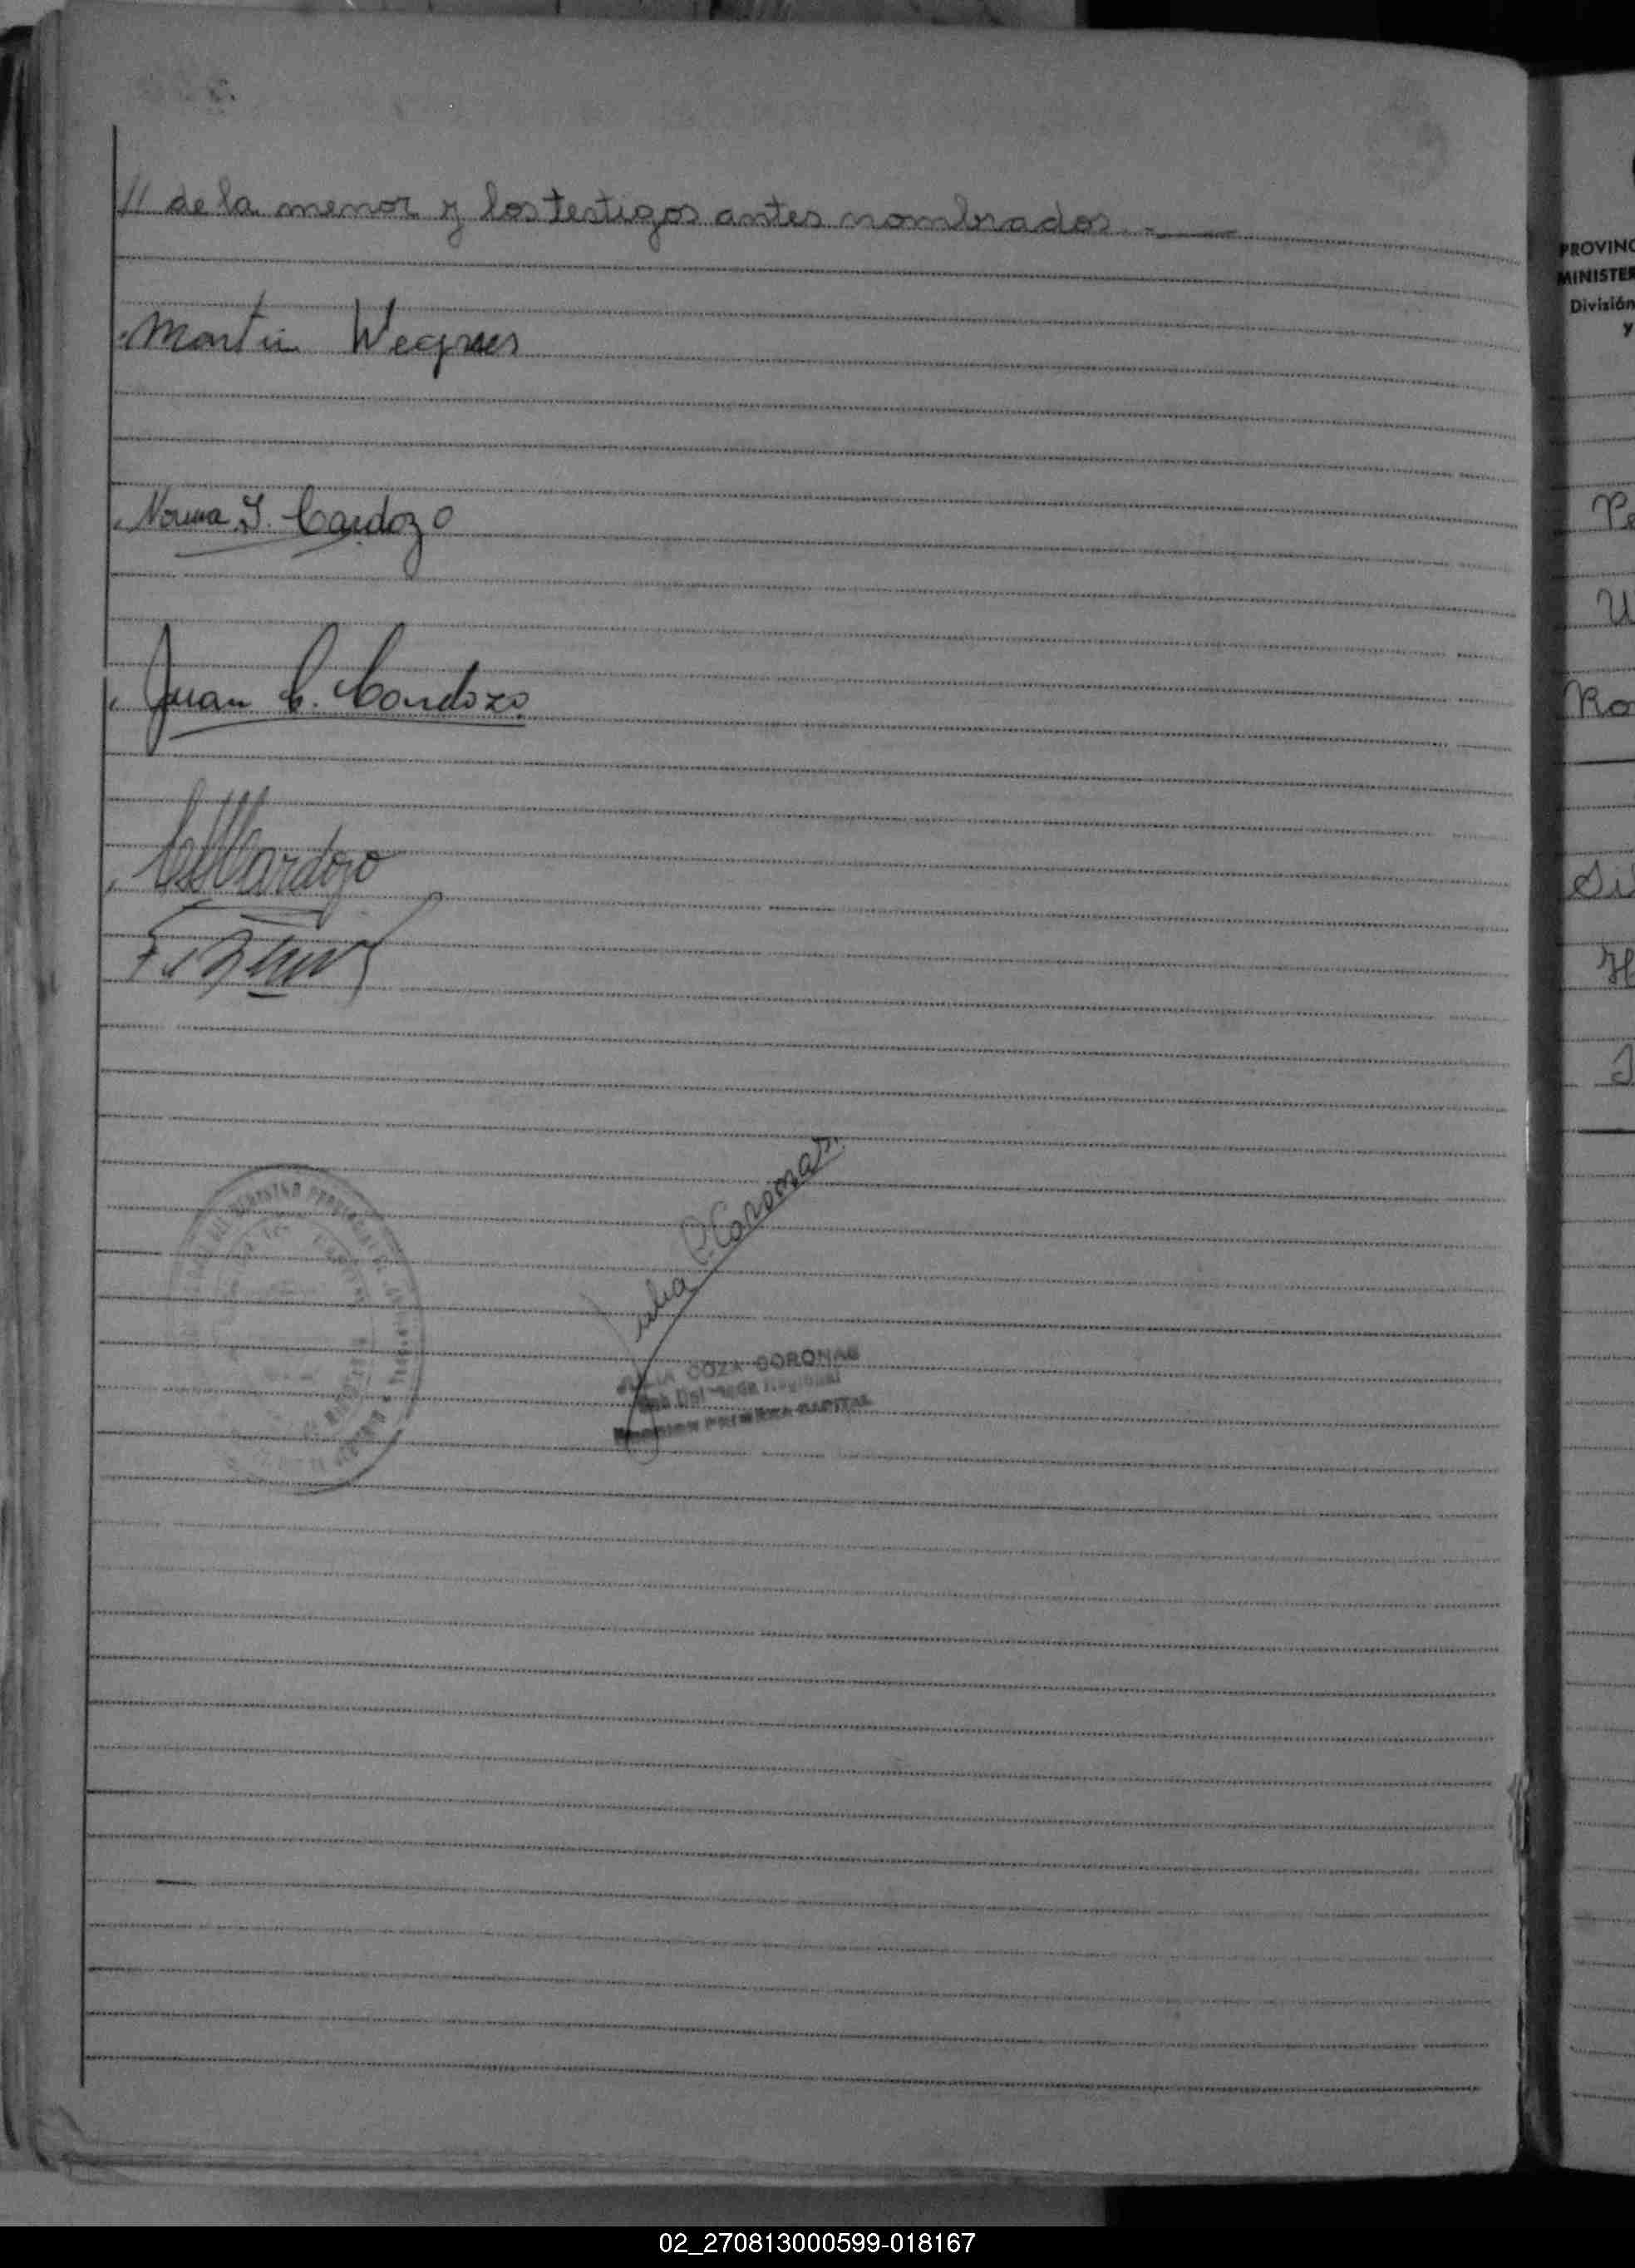 // de la menor y los testigos antes nombrados. -
Martin Wegner
Norma I. Cardozo
Juan C. Cardozo
Cardozo
Julia C. Coronas
JULIA COZA CORONAS
CAPITAL
PROVINC
MINISTER
División
y
Pe
U
Ro
Si
H
J
02_270813000599-018167